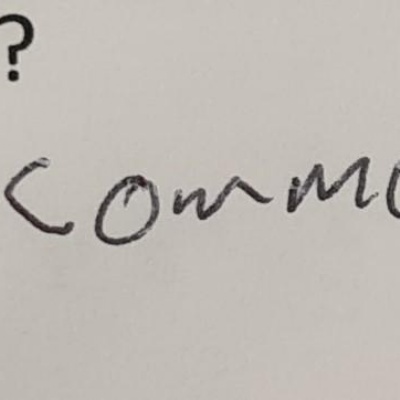 ?
comm